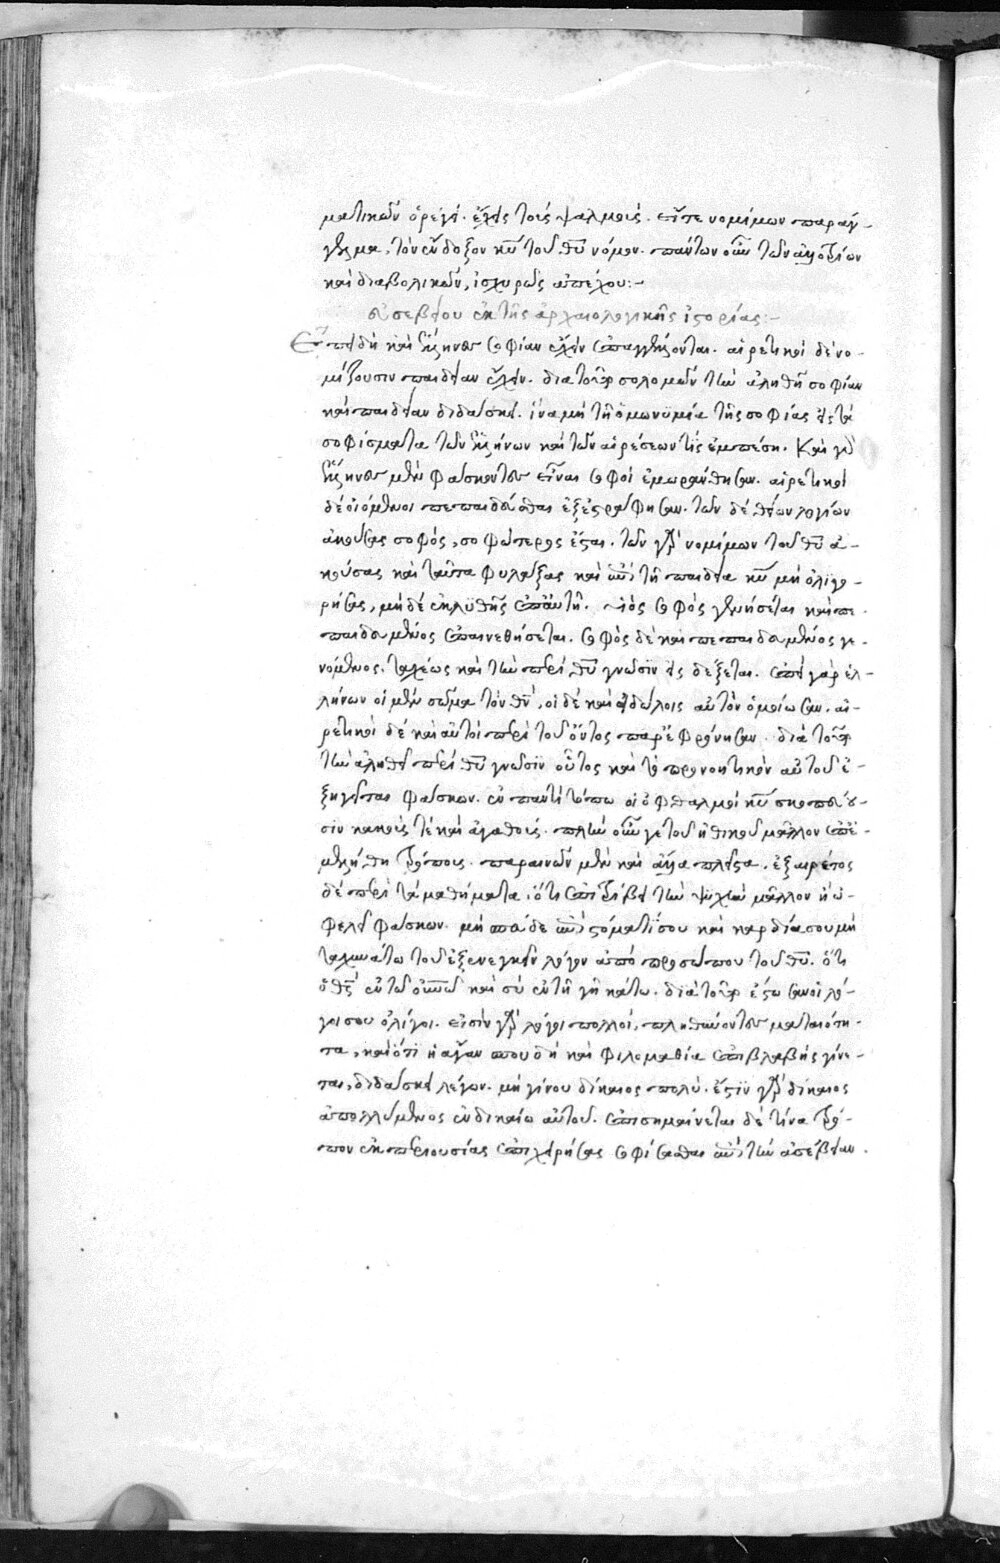 ματικῶν ὀρέγῃ· ἔχεις τοὺς ψαλμούς. εἴτε νομίμων παραγ-
γελμα, τὸν ἔνδοξον κυ τοῦ θυ νόμον. πάντων οὖν τῶν ἀλλοτρίων
καὶ διαβολικῶν, ἰσχυρῶς ἀπέχου:-
εὐσεβίου ἐκ τῆς ἀρχαιολογικῆς ἱστορίας:-
Ἐπειδὴ καὶ ἕλληνες σοφίαν ἔχειν ἐπαγγέλλονται. αἱρετικοὶ δὲ νο-
μίζουσιν παιδείαν ἔχειν. διατοῦτο σολομῶν τὴν ἀληθῆ σοφίαν
καὶ παιδείαν διδάσκει. ἵνα μὴ τῇ ὁμωνυμία τῆς σοφίας εἰς τὰ
σοφίσματα τῶν ἑλλήνων καὶ τῶν αἱρέσεων τὶς ἐμπέση. Καὶ γὰρ
ἕλληνες μὲν φάσκοντες εἶναι σοφοὶ ἐμωράνθησαν. αἱρετικοὶ
δὲ οἰόμενοι πεπαιδεῦσθαι ἐξέστράφησαν. τῶν δὲ θείων λογίων
ἀκούσας σοφὸς, σοφώτερος ἔσται. τῶν γὰρ νομίμων τοῦ θυ ἀ-
κούσας καὶ ταῦτα φυλάξας καὶ ἐπὶ τῇ παιδεία κυ μὴ ὀλιγο-
ρήσας, μὴ δὲ ἐκλυθῆς ἐπαυτῆ. υἱὸς σοφὸς γεννήσεται καὶ πε
παιδευμένος ἐπαινεθήσεται. σοφὸς δὲ καὶ πεπαιδευμένος γε-
νόμενος. ταχέως καὶ τὴν περὶ θυ γνῶσιν εἰσδέξεται. ἐπεὶ γὰρ ἑλ-
λήνων οἱ μὲν σῶμα τὸν θν, οἱ δὲ καὶ εἰδώλοις αὐτὸν ὁμοίωσαν. αἱ-
ρετικοὶ δὲ καὶ αὐτοὶ περὶ τοῦ ὄντος παρεφρόνησαν. διὰ τοῦτο
τὴν ἀληθῆ περὶ θυ γνῶσιν οὗτος καὶ τὸ προνοητικὸν αὐτοῦ ἐ-
ξηγεῖται φάσκων. ἐν παντὶ τόπω οἱ ὀφθαλμοὶ κυ σκοπεύου-
σιν κακούς τε καὶ ἀγαθούς. πλὴν οὖν γε τοῦ ἠθικοῦ μᾶλλον ἐπε-
μελήθη τρόπους. παραινῶν μὲν καὶ ἄλλα πλεῖστα. ἐξαιρέτος
δὲ περὶ τὰ μαθήματα. ὅτι ἐπιτρίβει τὴν ψυχὴν μᾶλλον ἢ ὠ-
φελεῖ φάσκων. μὴ σπεῦδε ἐπὶ στόματί σου καὶ καρδία σου μὴ
ταχυνάτω τοῦ ἐξενεγκεῖν λόγον ἀπὸ προσώπου τοῦ θυ. ὅτι
ὁ θς ἐν τῷ οὐνῷ καὶ σὺ ἐν τῇ γῇ κάτω. διατοῦτο ἔστωσαν οἱ λό-
γοι σου ὀλίγοι. εἰσὶν γὰρ λόγοι πολλοὶ, πληθύνοντες ματαιότη-
τα, καὶ ὅτι ἡ ἄγαν σπουδὴ καὶ φιλομαθία ἐπιβλαβὴς γίνε-
ται, διδάσκει λέγων. μὴ γίνου δίκαιος πολύ. ἔστιν γὰρ δίκαιος
ἀπολλύμενος ἐν δικαίω αὐτοῦ. ἐπισημαίνεται δὲ τίνα τρό-
πον ἐκ περιουσίας ἐπιχειρήσας σοφίσασθαι ἐπὶ τὴν ἀσέβειαν